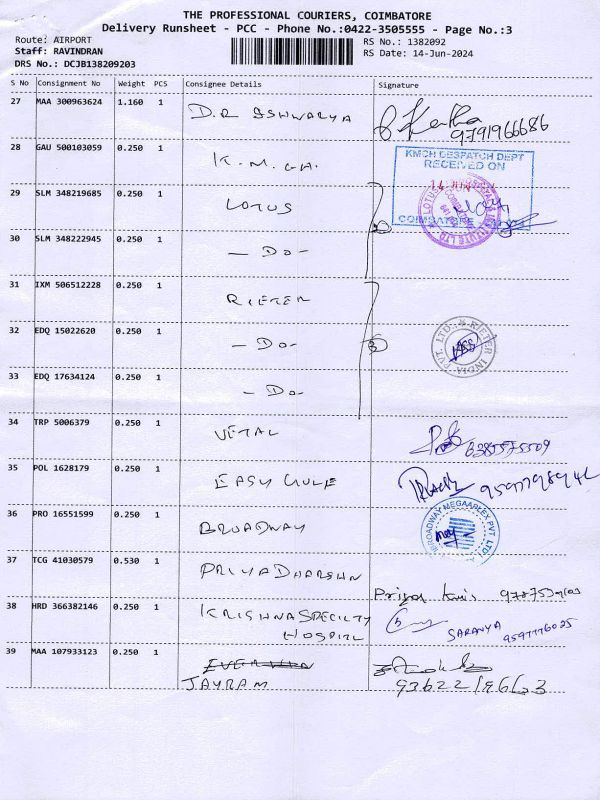 THE PROFESSIONAL COURIERS, COIMBATORE
Delivery Runsheet - PCC - Phone No.:0422-3505555 - Page No.:3
Route: AIRPORT
RS No.: 1382092
Staff: RAVINDRAN
RS Date: 14-Jun-2024
DRS No.: DCJB138209203
S No Consignment No Weight PCS Consignee Details Signature
27 MAA 300963624 1.160 1 D.R
9791966686
28 GAU 500103059 0.250 1 K.M.CH.
KMCH DESPATCH DEPT
RECEIVED ON
14 JUN
COIMBATORE
29 SLM 348219685 0.250 1 LOTUS
30 SLM 348222945 0.250 1 - Do -
31 IXM 506512228 0.250 1 RIETER
32 EDQ 15022620 0.250 1 - Do -
RIETER INDIA PVT. LTD.
33 EDQ 17634124 0.250 1 - Do -
34 TRP 5006379 0.250 1 VETAL
35 POL 1628179 0.250 1 EASY
36 PRO 16551599 0.250 1 BROADWAY
BROADWAY MEGAAPLEX PVT LTD
37 TCG 41030579 0.530 1 PRIYADHARSHN
Priya
38 HRD 366382146 0.250 1 KRISHNA SPECILTY
HOSPITL
SARANYA
39 MAA 107933123 0.250 1
JAYRAM